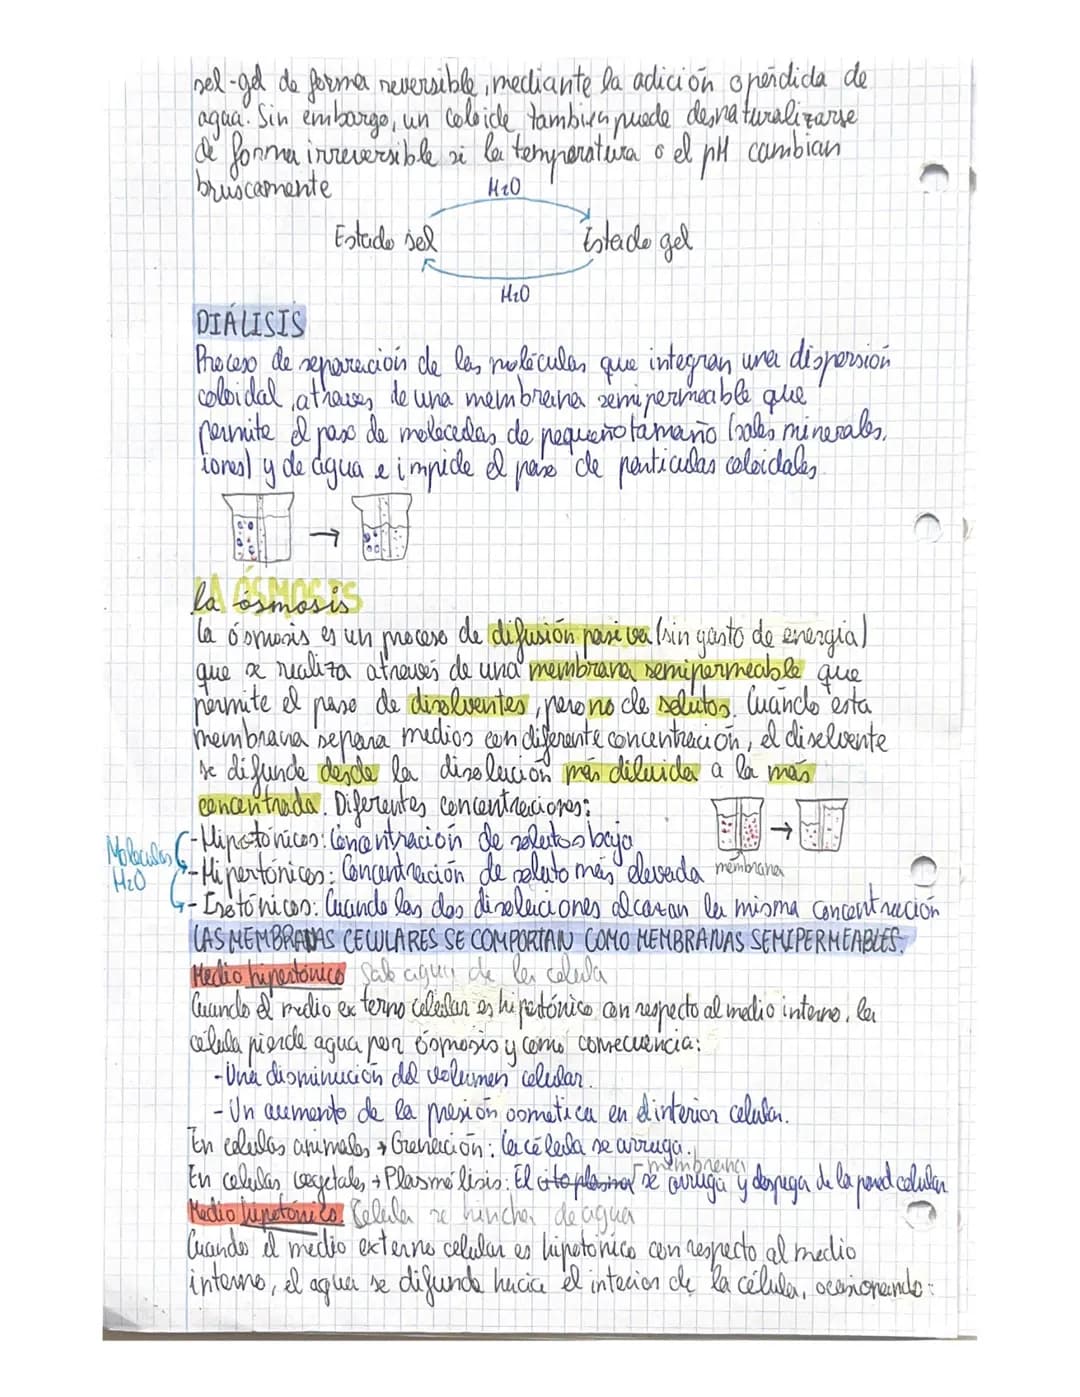 sol-gel de forma reversible, mediante la adición o pérdida de
agua. Sin embargo, un coloide tambien puede desnaturalizarse
de forma irreversible si la temperatura o el pH cambian
bruscamente
H2O
Estado sol Estado gel
H2O
DIÁLISIS
Proceso de separación de las moléculas que integran una dispersión
coloidal, atraves de una membrana semipermeable que
permite el paso de moleculas de pequeño tamaño (sales minerales,
iones) y de agua e impide el paso de particulas coloidales.
LA ÓSMOSIS
la ósmosis
La ósmosis es un proceso de difusión pasiva (sin gasto de energia)
que se realiza através de una membrana semipermeable que
permite el paso de disolventes, pero no de solutos. Cuando esta
membrana separa medios con diferente concentración, el disolvente
se difunde desde la disolución más diluida a la más
concentrada. Diferentes concentraciones:
- Hipotónicos: Concentración de solutos bajo
Moleculas H2O
- Hipertónicos: Concentración de soluto más elevada
membrana
- Isotónicos: Cuando las dos disoluciones alcazan la misma concentración
LAS MEMBRANAS CELULARES SE COMPORTAN COMO MEMBRANAS SEMIPERMEABLES.
Medio hipertónico Sale agua de la celula
Cuando el medio externo celular es hipertónico con respecto al medio interno, la
célula pierde agua por ósmosis y como consecuencia:
- Una disminución del volumen celular.
- Un aumento de la presión osmotica en el interior celular.
En celulas animales → Crenación: la célula se arruga.
membrana
En celulas vegetales → Plasmólisis: El citoplasma se arruga y despega de la pared celular
Medio hipotónico. Celula se hincha de agua
Cuando el medio externo celular es hipotónico con respecto al medio
interno, el agua se difunde hacia el interior de la célula, ocasionando: